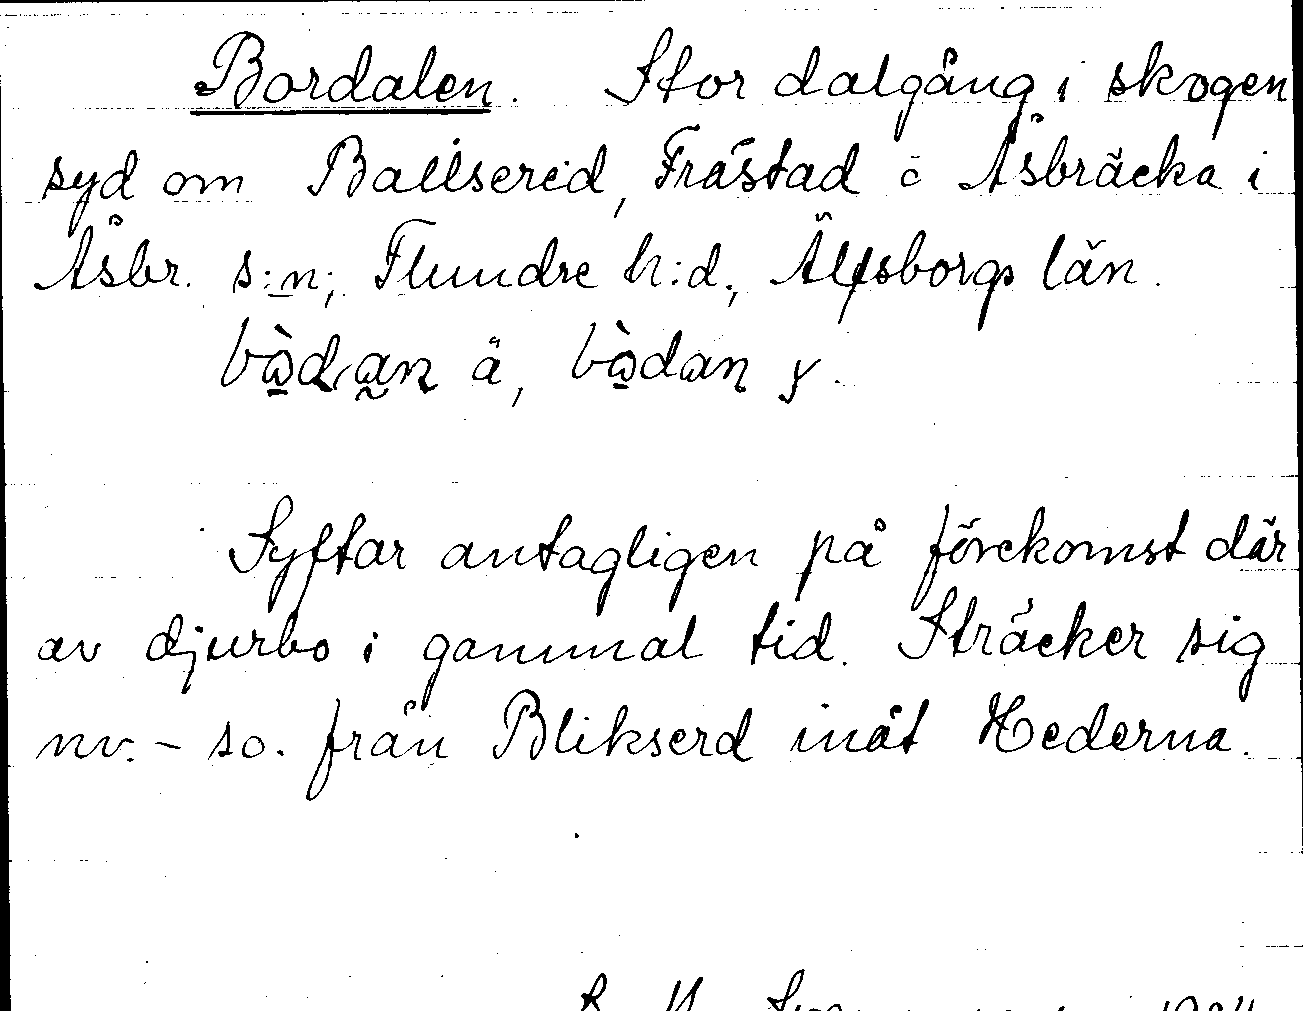 Bordalen. Stor dalgång i skogen
syd om Ballsered, Fråstad o Åsbräcka i
Åsbr. s:n; Flundre h:d., Älfsborgs län.
bὼdan ä, bὼdan y.
Syftar antagligen på förekomst där
av djurbo i gammal tid. Sträcker sig
nv. – so. från Blikserd inåt Hederna.